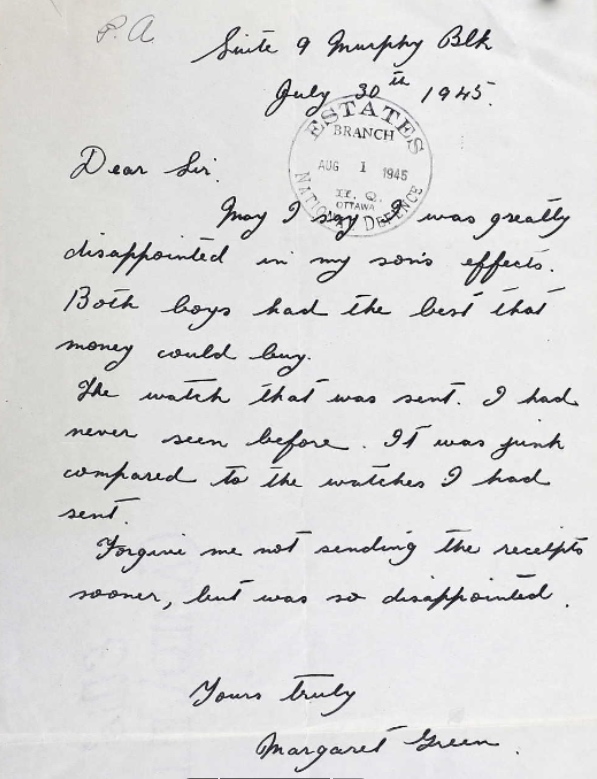 P.A.
Suite 9 Murphy Blk
July 30th 1945.
ESTATES
BRANCH
AUG 1 1945
H. Q.
OTTAWA
NATIONAL DEFENCE
Dear Sir.
May I say I was greatly
disappointed in my son's effects.
Both boys had the best that
money could buy.
The watch that was sent. I had
never seen before. It was junk
compared to the watches I had
sent.
Forgive me not sending the receipts
sooner, but was so disappointed.
Yours truly
Margaret Green.